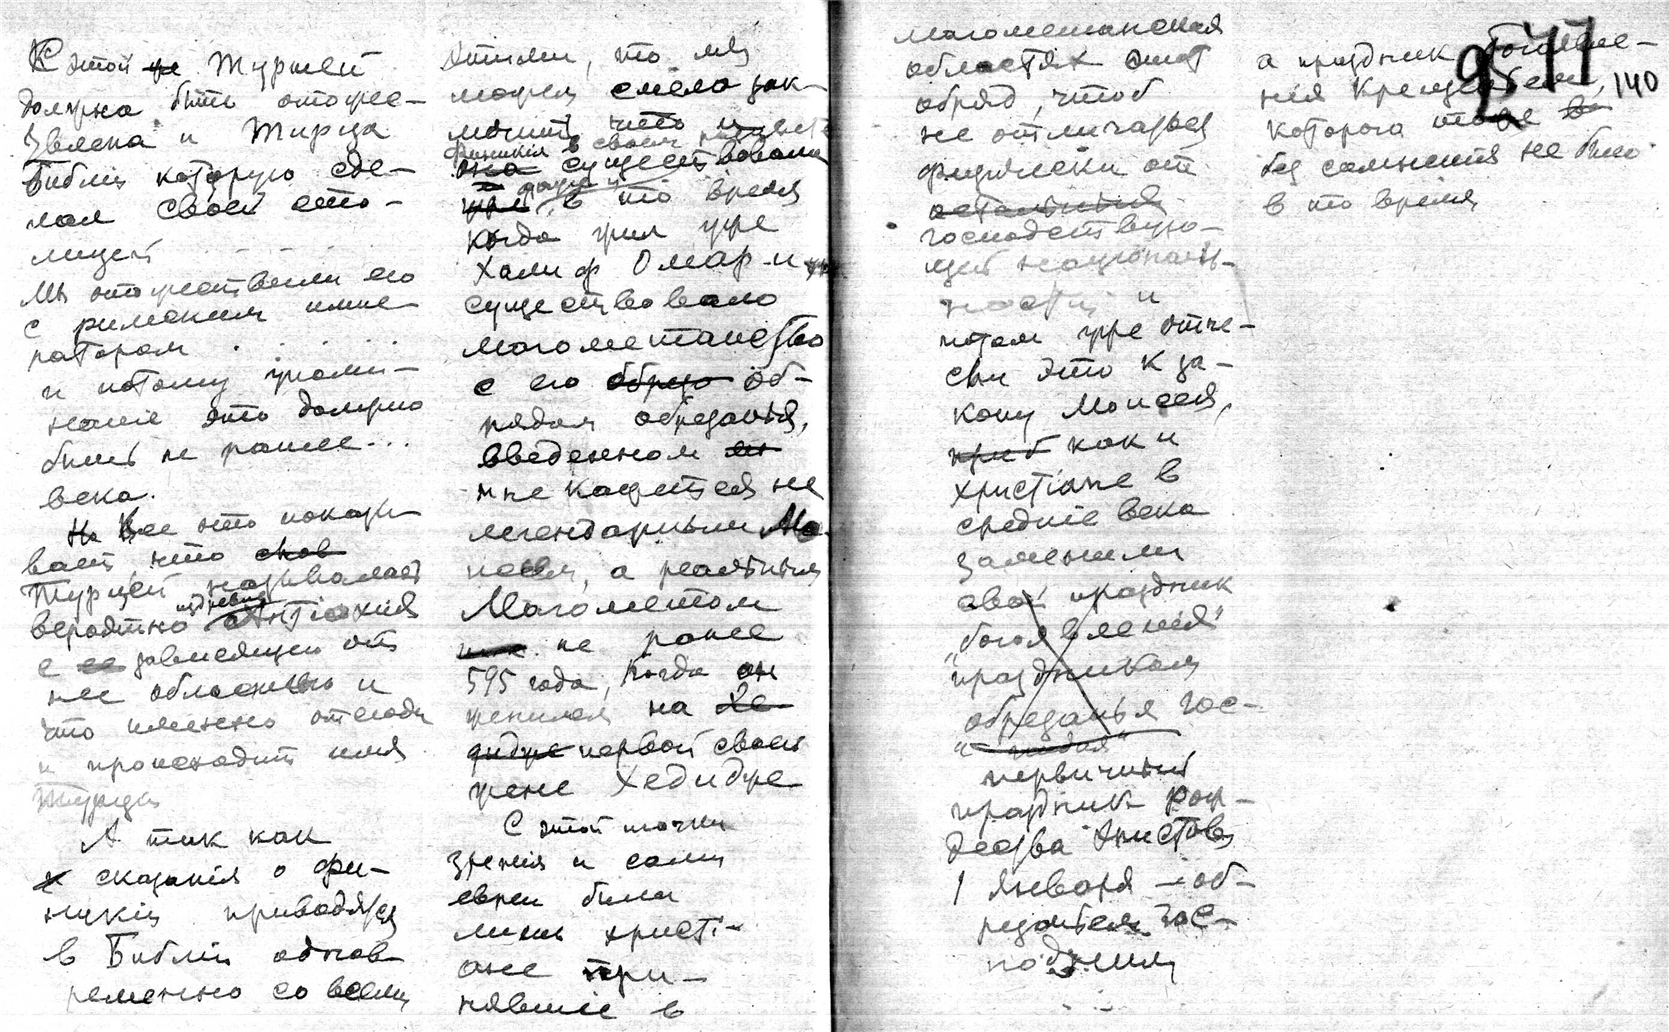 С этой Турцией
должна быть отоже-
ствлена и Тирца
Библіи которую сде-
лал своей сто-
лицей . . .
Мы отожествили его
с римским импе-
ратором . . . .
и потому упоми-
наніе это должно
быть не ранее...
века.
Но все это показы-
вает, что
Турцией называлась
вероятно издревле Антіохия
с зависящей от
нее областью и
что именно отсюда
и происходит имя
Турция
А так как
сказанія о фи-
никіи приводятся
в Библіи однов-
ременно со всеми
этими, то мы
можем смело зак-
лючить, что и
Финикія в своем
существовала
в то время
когда жил уже
Халиф Омар и
существовало
магометанство
с его об-
рядом обрезанія,
введенном
мне кажется не
легендарным Мо-
исеем, а реальным
Магометом
не ранее
595 года, когда он
женился на Хе-
дидже первой своей
жене Хедидже
С этой точки
зренія и сами
евреи были
лишь христі-
ане при-
нявшіе в
магометанских
областях этот
обряд, чтоб
не отличаться
физически от
остальных
господствую-
щей націонал-
ности и
потом уже отне-
сли это к за-
кону Моисея,
как и
христіане в
средніе века
заменили
свой праздник
„богоявленія"
праздником
обрезанья гос-
первичный
праздник рож-
дества Христова
1 января – об-
резаньем гос-
подним
а праздник богоявле-
нія Крещеніем,
которого тоже
без сомненія не было
в то время
140